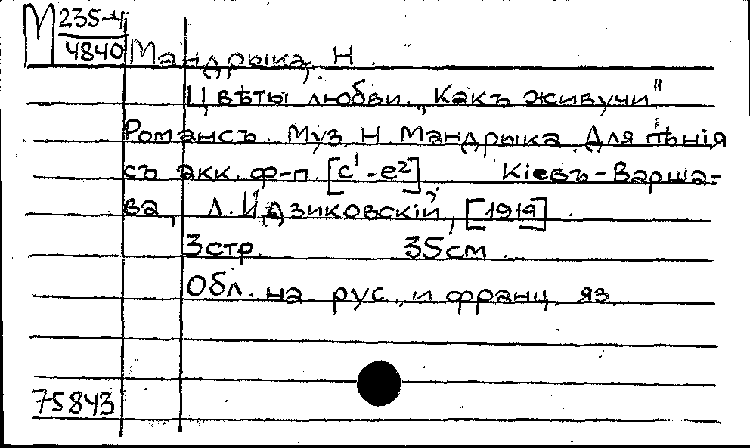 М 235-4
4840
Мандрыка, Н.
Цвѣты любви. „Какъ живучи"
Романсъ. Муз. Н. Мандрыка. Для пѣнія
съ акк. ф-п. [c¹-e²]. Кіевъ-Варша-
ва, Л. Идзиковскій, [1919].
3 стр. 35 см.
Обл. на рус. и франц. яз.
75843